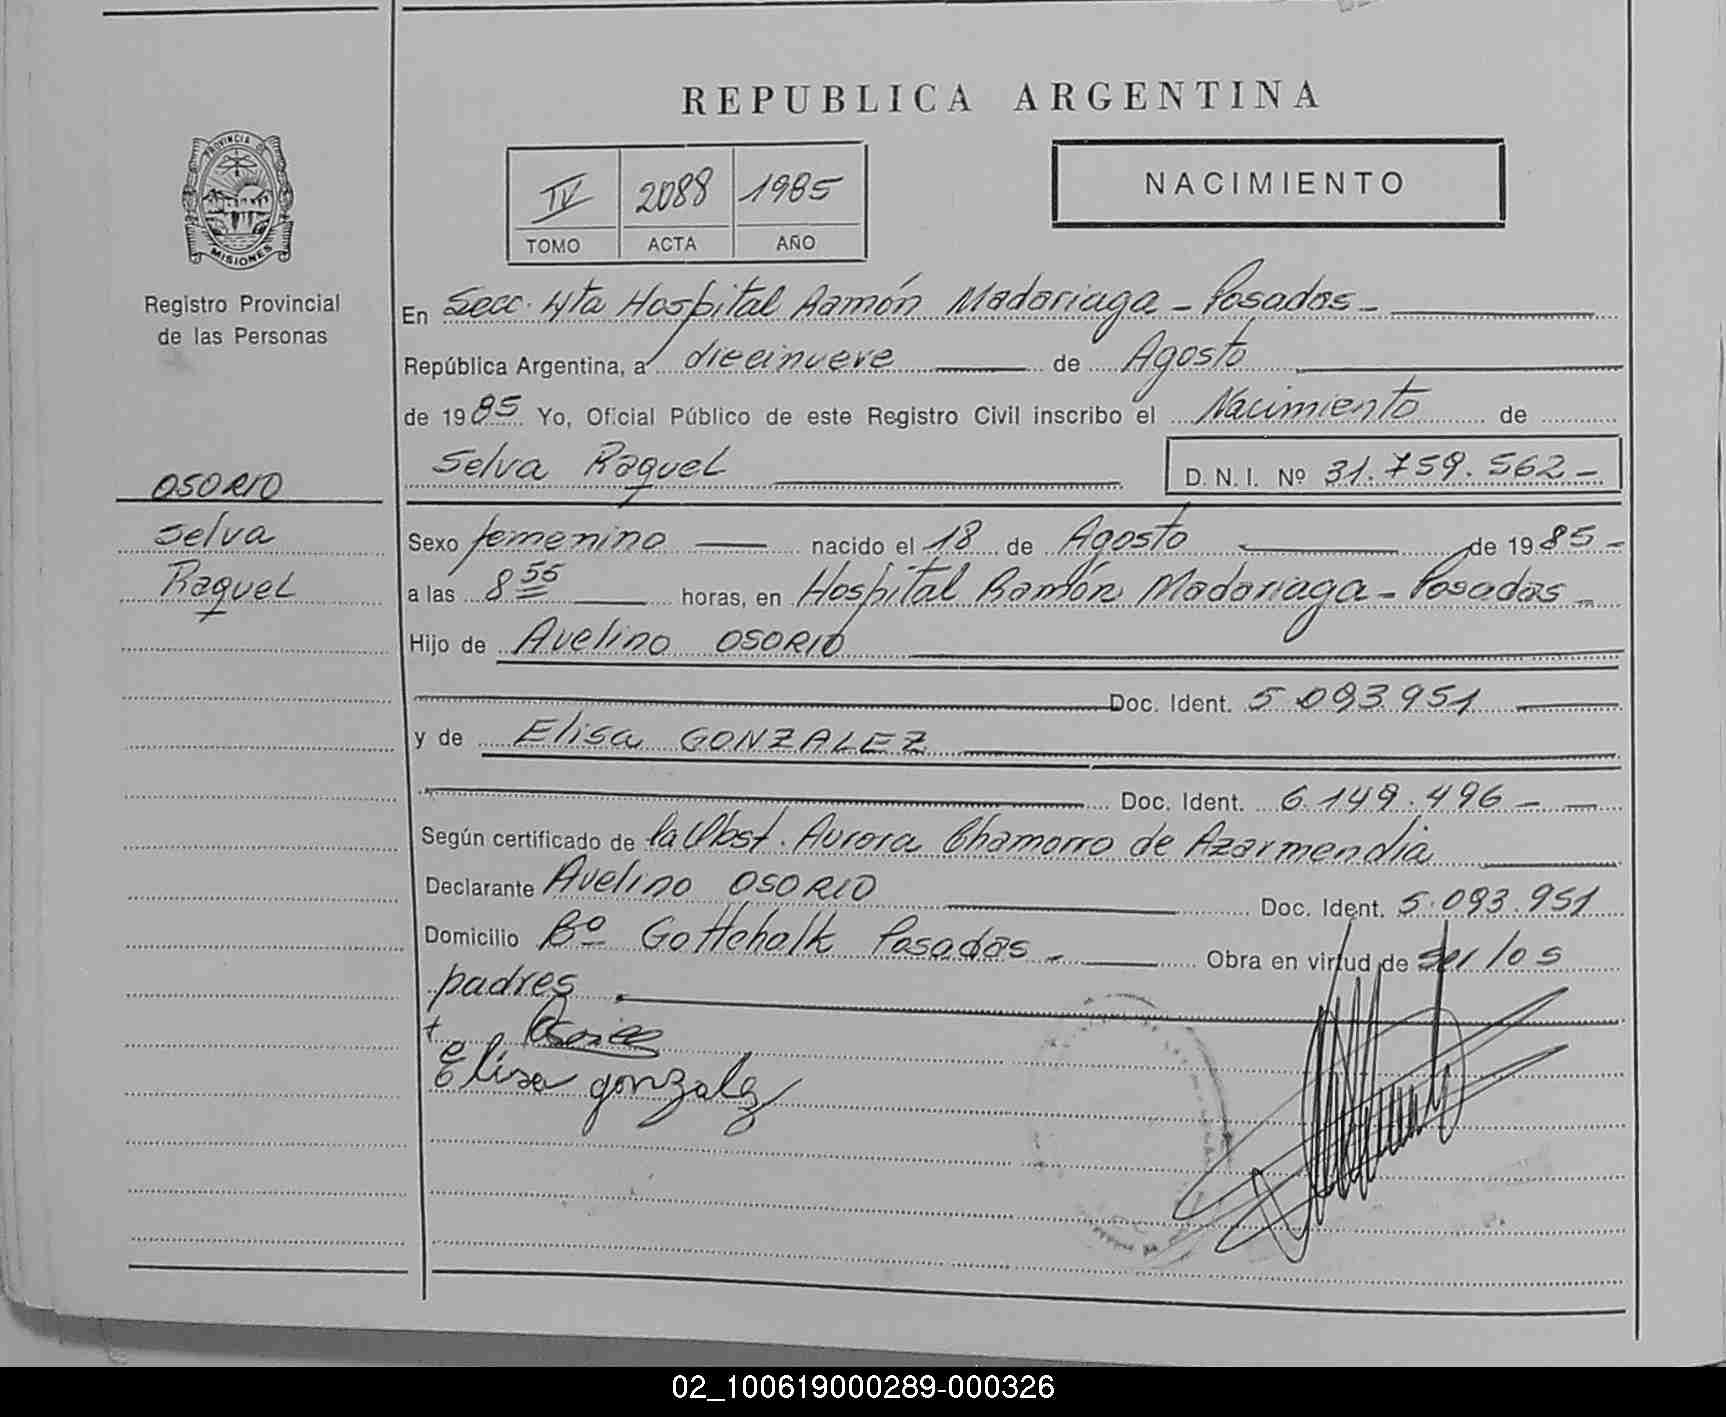 REPUBLICA ARGENTINA
PROVINCIA DE
MISIONES
Registro Provincial
de las Personas
IV 2088 1985
TOMO ACTA AÑO
NACIMIENTO
En Secc. 4ta Hospital Ramón Madariaga - Posadas -
República Argentina, a diecinueve de Agosto
de 1985 Yo, Oficial Público de este Registro Civil inscribo el Nacimiento de
Selva Raquel D. N. I. Nº 31.759.562 -
OSORIO
Selva
Raquel
Sexo femenino nacido el 18 de Agosto de 1985 -
a las 8 55 horas, en Hospital Ramón Madariaga - Posadas -
Hijo de Avelino OSORIO
Doc. Ident. 5.093.951
y de Elisa GONZALEZ
Doc. Ident. 6.149.496 -
Según certificado de la Obst. Aurora Chamorro de Azarmendia
Declarante Avelino OSORIO Doc. Ident. 5.093.951
Domicilio Bº Gottchalk Posadas - Obra en virtud de ser los
padres
Elisa gonzalez
02_100619000289-000326